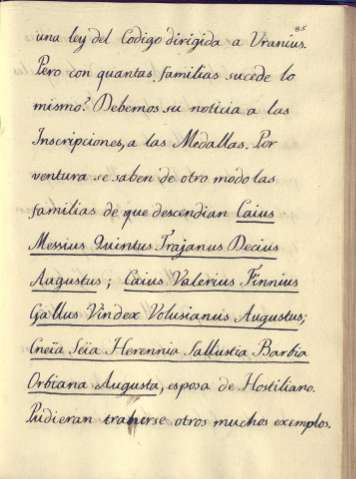 85
una ley del Codigo dirigida a Vranius.
Pero con quantas familias sucede lo
mismo? Debemos su noticia a las
Inscripciones, a las Medallas. Por
ventura se saben de otro modo las
familias de que descendian Caius
Messius Quintus Trajanus Decius
Augustus; Caius Valerius Finnius
Gallus Vindex Volusianus Augustus;
Cneïa Seïa Herennia Sallustia Barbia
Orbiana Augusta, esposa de Hostiliano.
Pudieran traherse otros muchos exemplos.